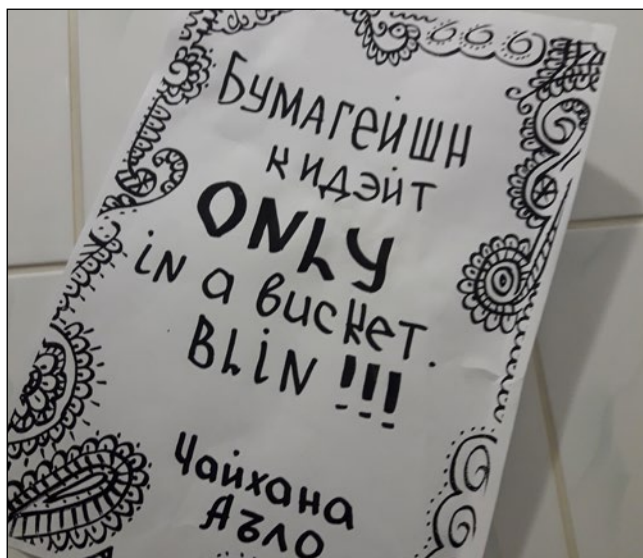 Бумагейшн
кидэйт
ONLY
in a bucket.
BLiN !!!
Чайхана
Аъло